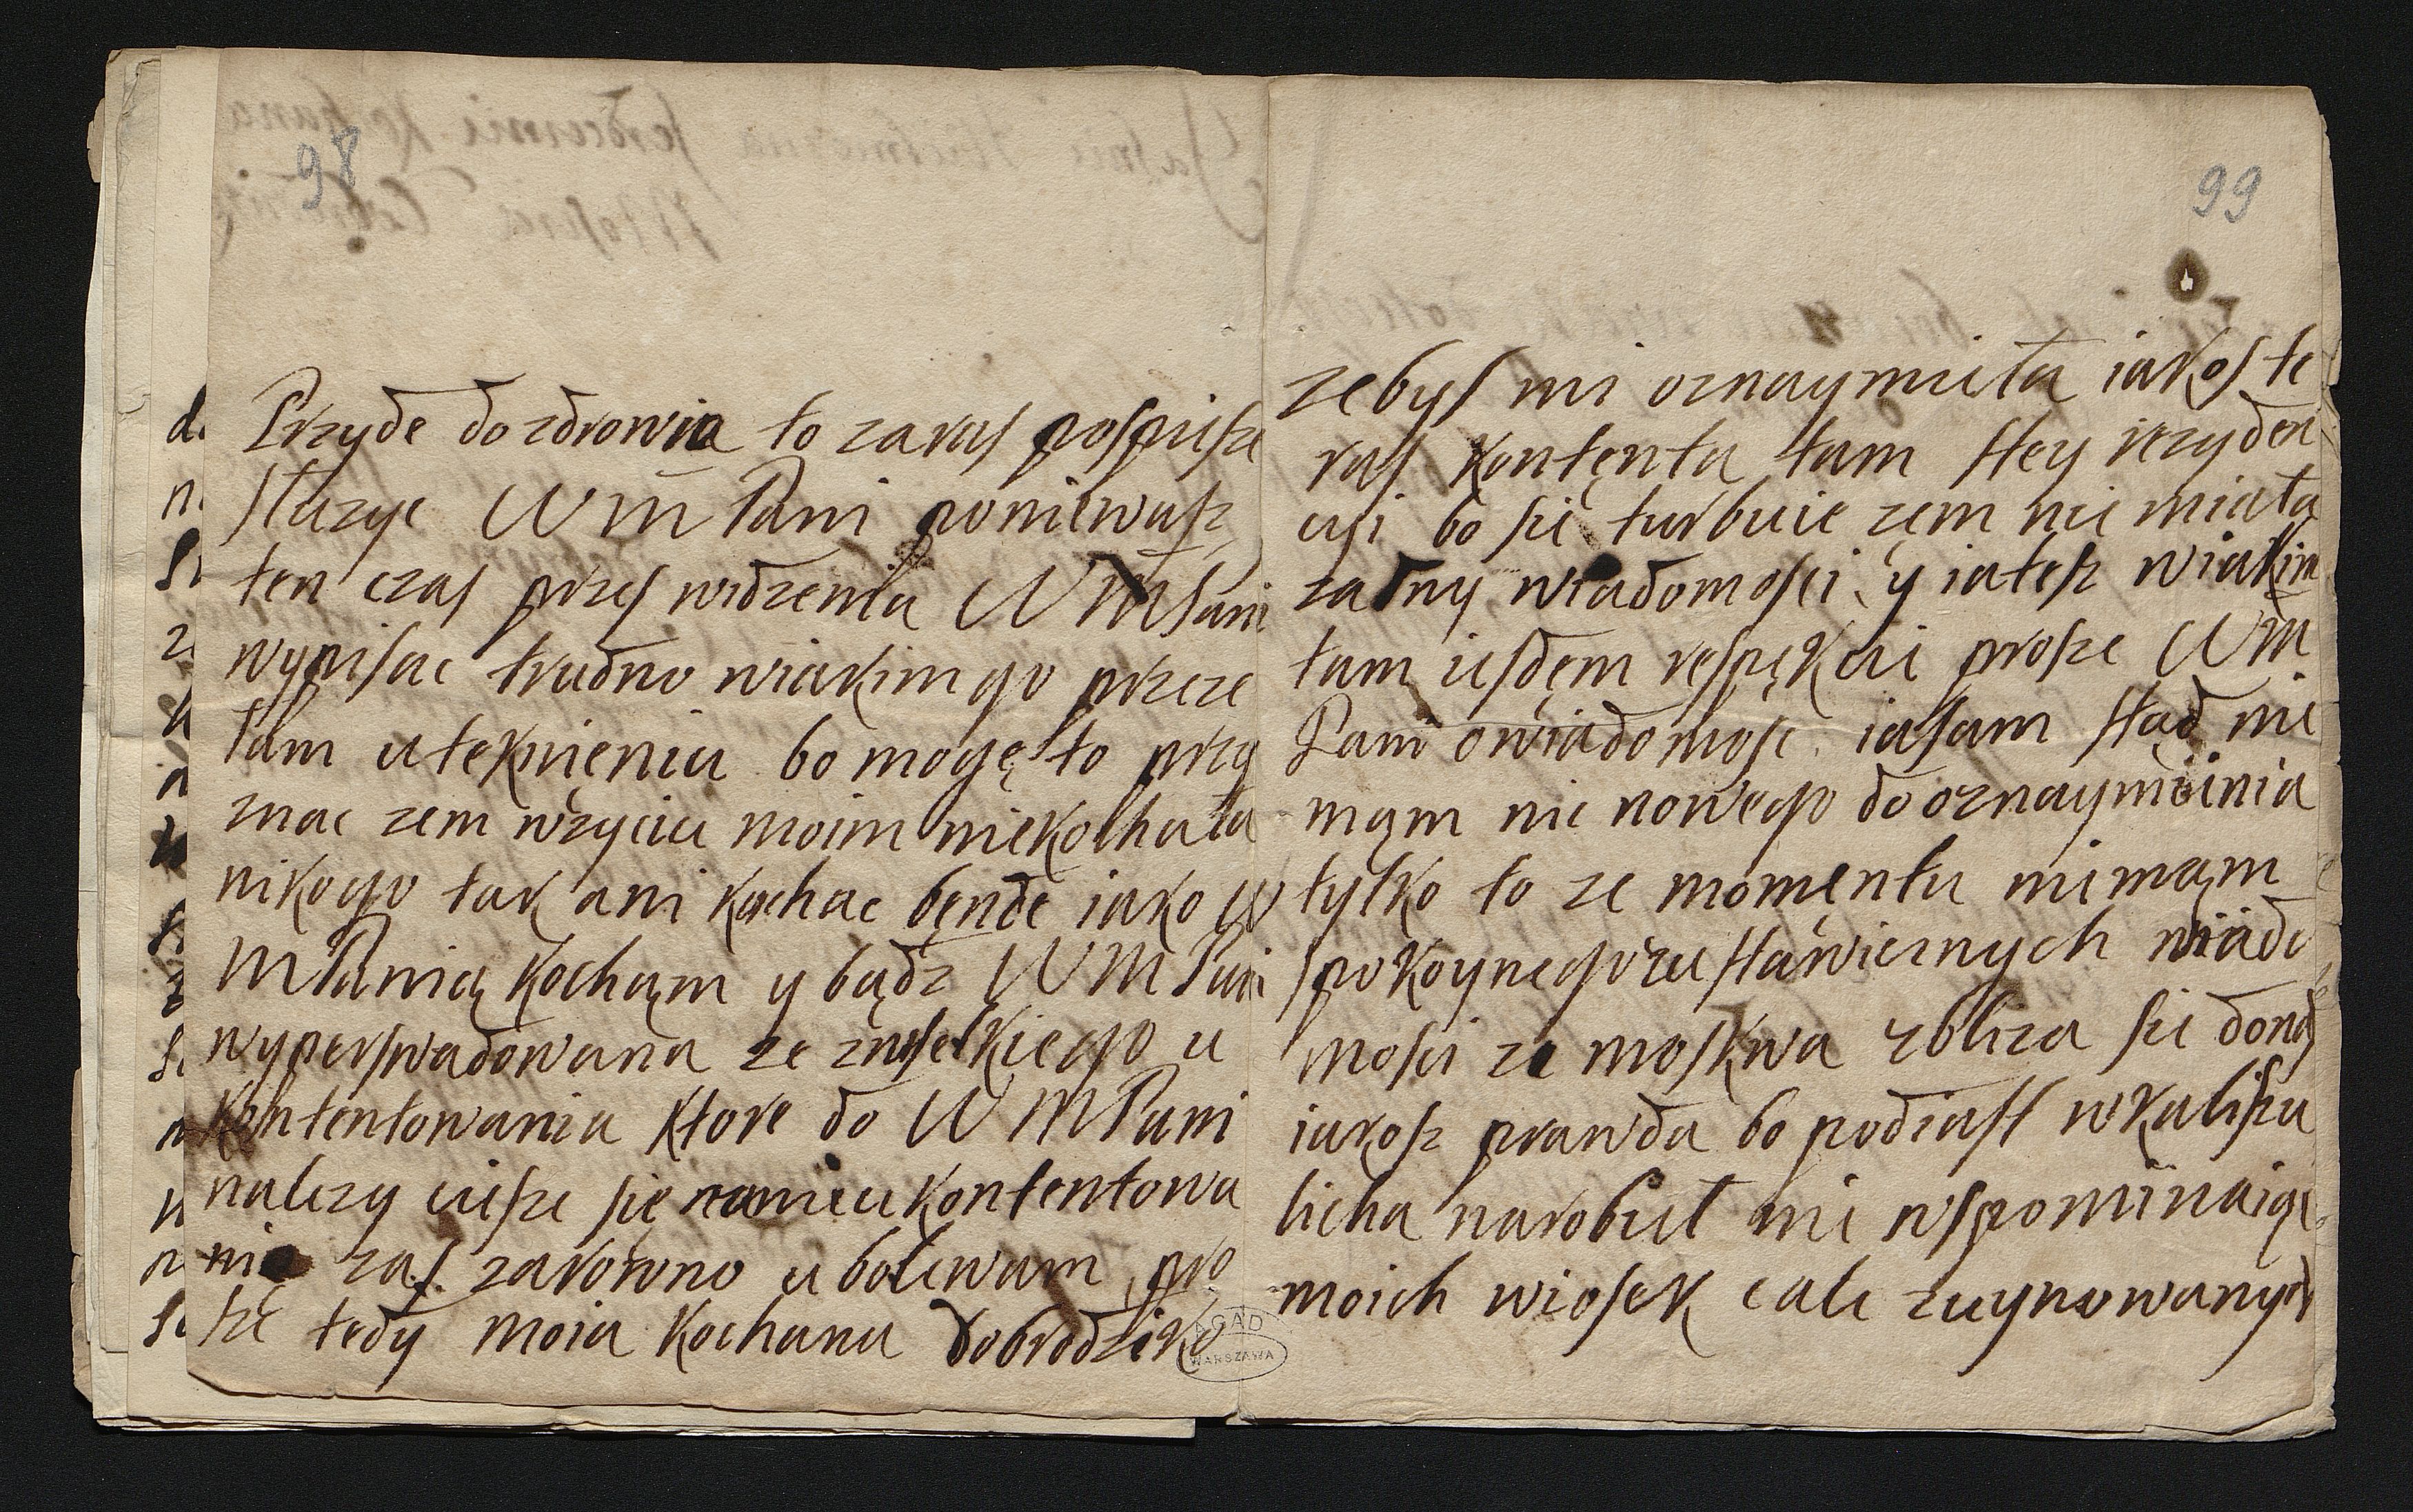 98
Przyde do zdrowia to zaras pospiesze
słuzyc WM Pani poniewasz
ten czas przes widzenia WM Pani
wypisac trudno wiakim go przeze
łam uteknieniu bo mogę to przy
znac zem wzyciu moim niekochała
nikogo tak ani kochac bęnde iako W
MPanią kocham y bądz WM Pani
wyperswadowana ze zwselkiego u
kontentowania ktore do WMPani
nalezy ciesze się
nie zas zarowno ubolewam pro
sze tedy moia kochana dobrodziko
99
zebys mi oznaymieła iakos te
ras kontęnta tam stey rezyden
cyi bo sie turbuie zem nie miała
zadny wiadomosci y iatesz wiakim
tam iesdęm respękcie prosze WM
Pani owiadomosc iasam stąd nie
mąm nic nowego do oznaymiinia
tylko to ze momęntu nimąm
spokoynego zustawicznych wiado
mosci ze moskwa zbliza sie donas
iakosz prawda bo podiast wkaliszu
licha narobieł nie wspominaiąc
moich wiosek cale zuynowanych
AGAD
WARSZAWA